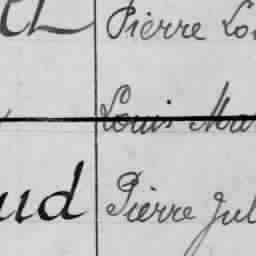 Pierre Lo
Louis Ma
ud Pierre Jul